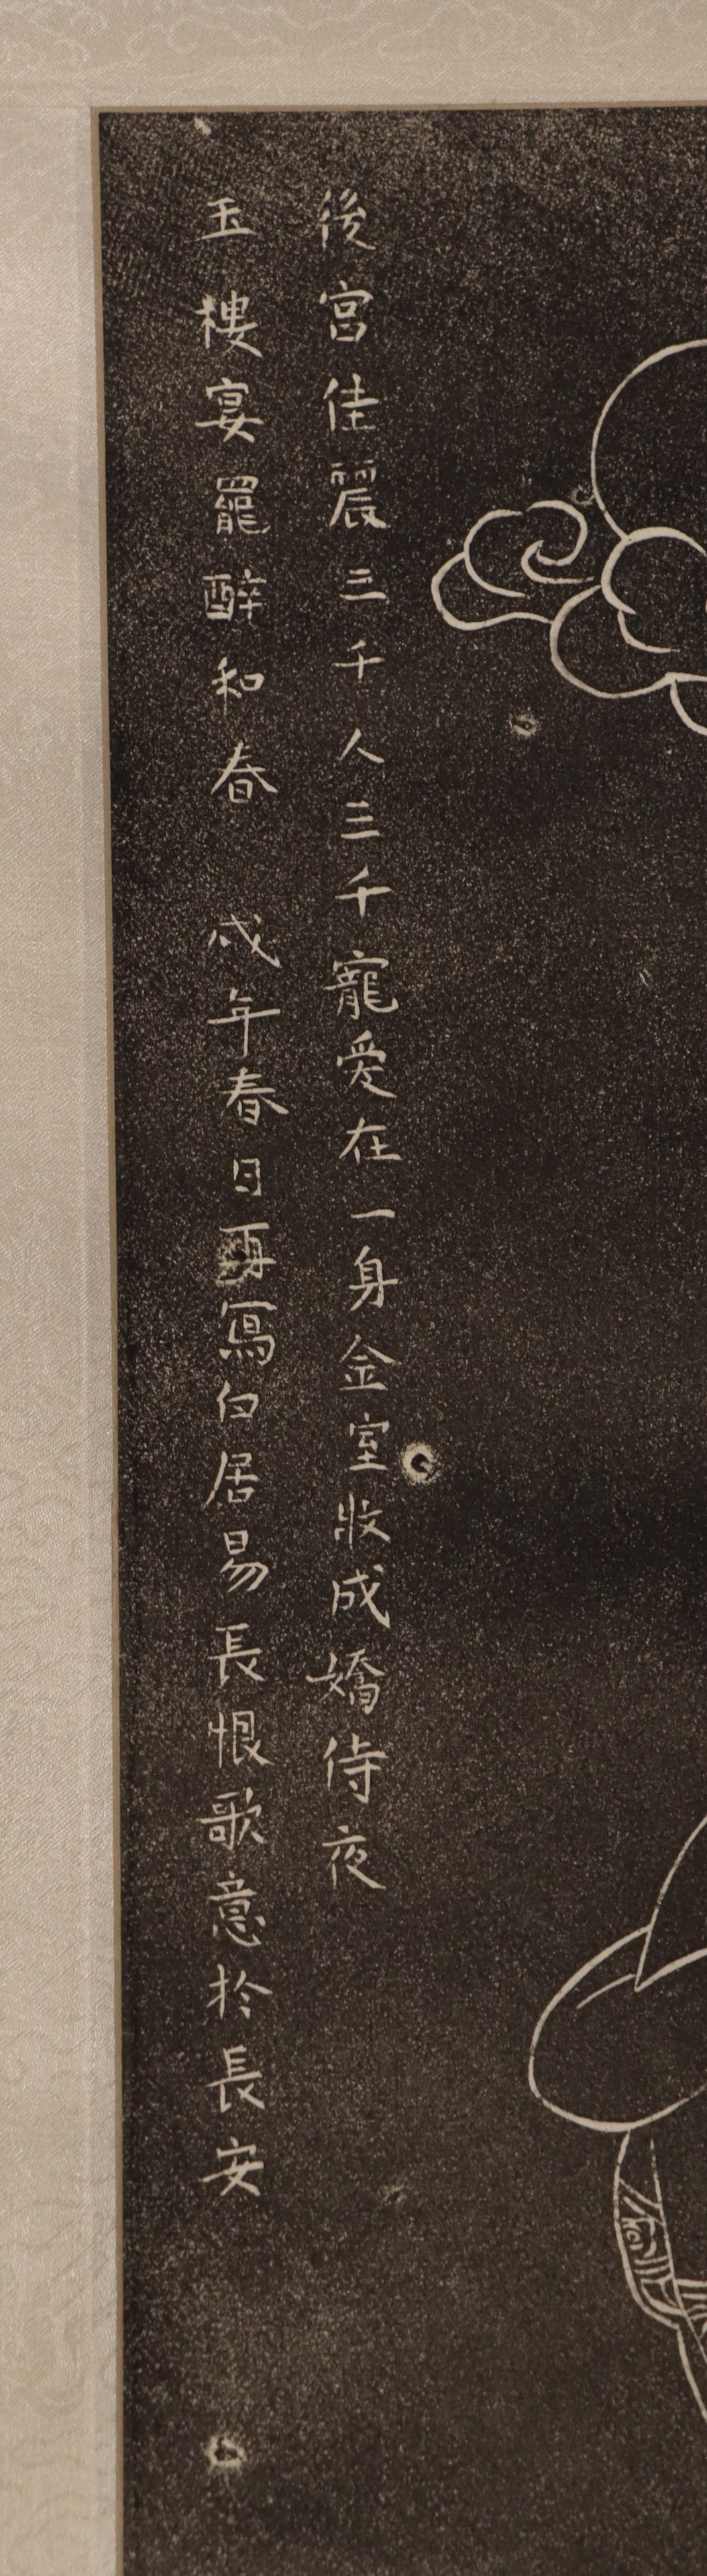 後宮佳麗三千人三千寵愛在一身金室妝成嬌侍夜
玉樓宴罷醉和春 戍年春日再寫白居易長恨歌意於長安